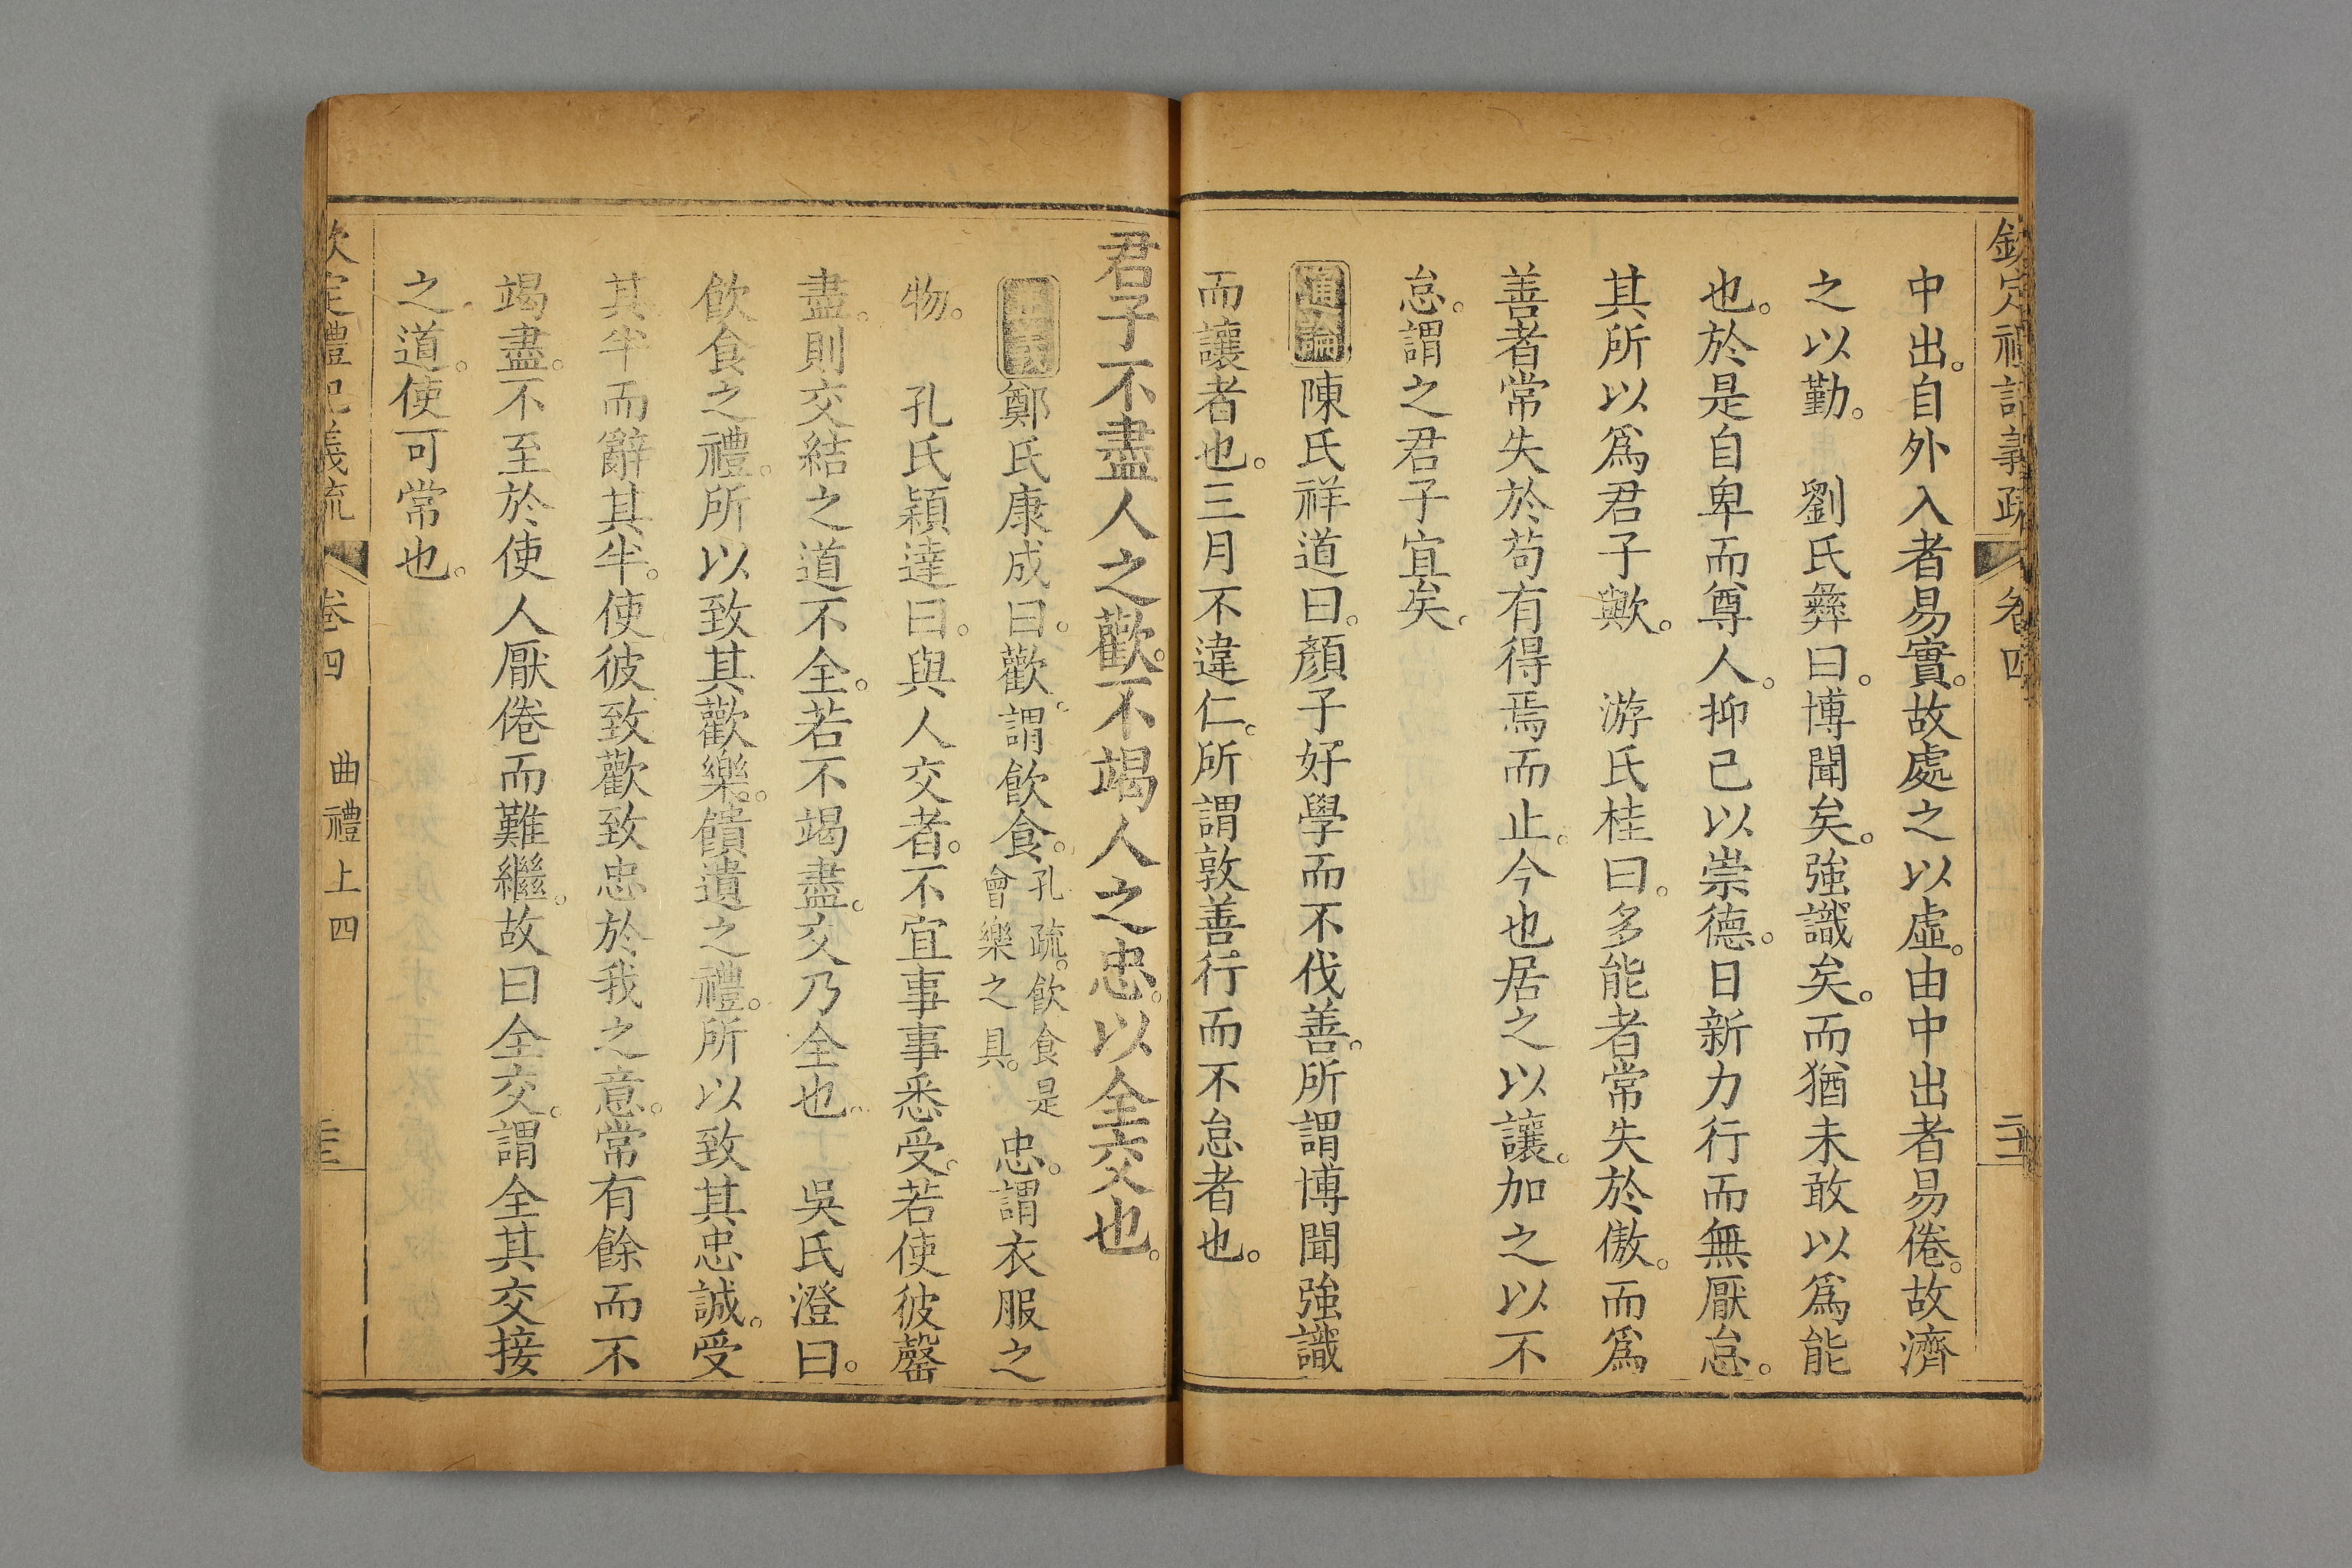 欽定禮記義疏 卷四
中出。自外入者易實。故處之以虛。由中出者易倦。故濟
之以勤。 劉氏彝曰。博聞矣。強識矣。而猶未敢以爲能
也。於是自卑而尊人。抑己以崇德。日新力行而無厭怠。
其所以爲君子歟。 游氏桂曰。多能者常失於傲。而爲
善者常失於苟有得焉而止。今也居之以讓。加之以不
怠。謂之君子宜矣。
通論 陳氏祥道曰。顏子好學而不伐善。所謂博聞強識
而讓者也。三月不違仁。所謂敦善行而不怠者也。
君子不盡人之歡。不竭人之忠。以全交也。
鄭氏康成曰。歡。謂飲食。孔疏。飲食是會樂之具。忠。謂衣服之
物。 孔氏穎達曰。與人交者。不宜事事悉受。若使彼罄
盡。則交結之道不全。若不竭盡。交乃全也。 吳氏澄曰。
飲食之禮。所以致其歡樂。饋遺之禮。所以致其忠誠。受
其半而辭其半。使彼致歡致忠於我之意。常有餘而不
竭盡。不至於使人厭倦而難繼。故曰全交。謂全其交接
之道。使可常也。
欽定禮記義疏 卷四 曲禮上四